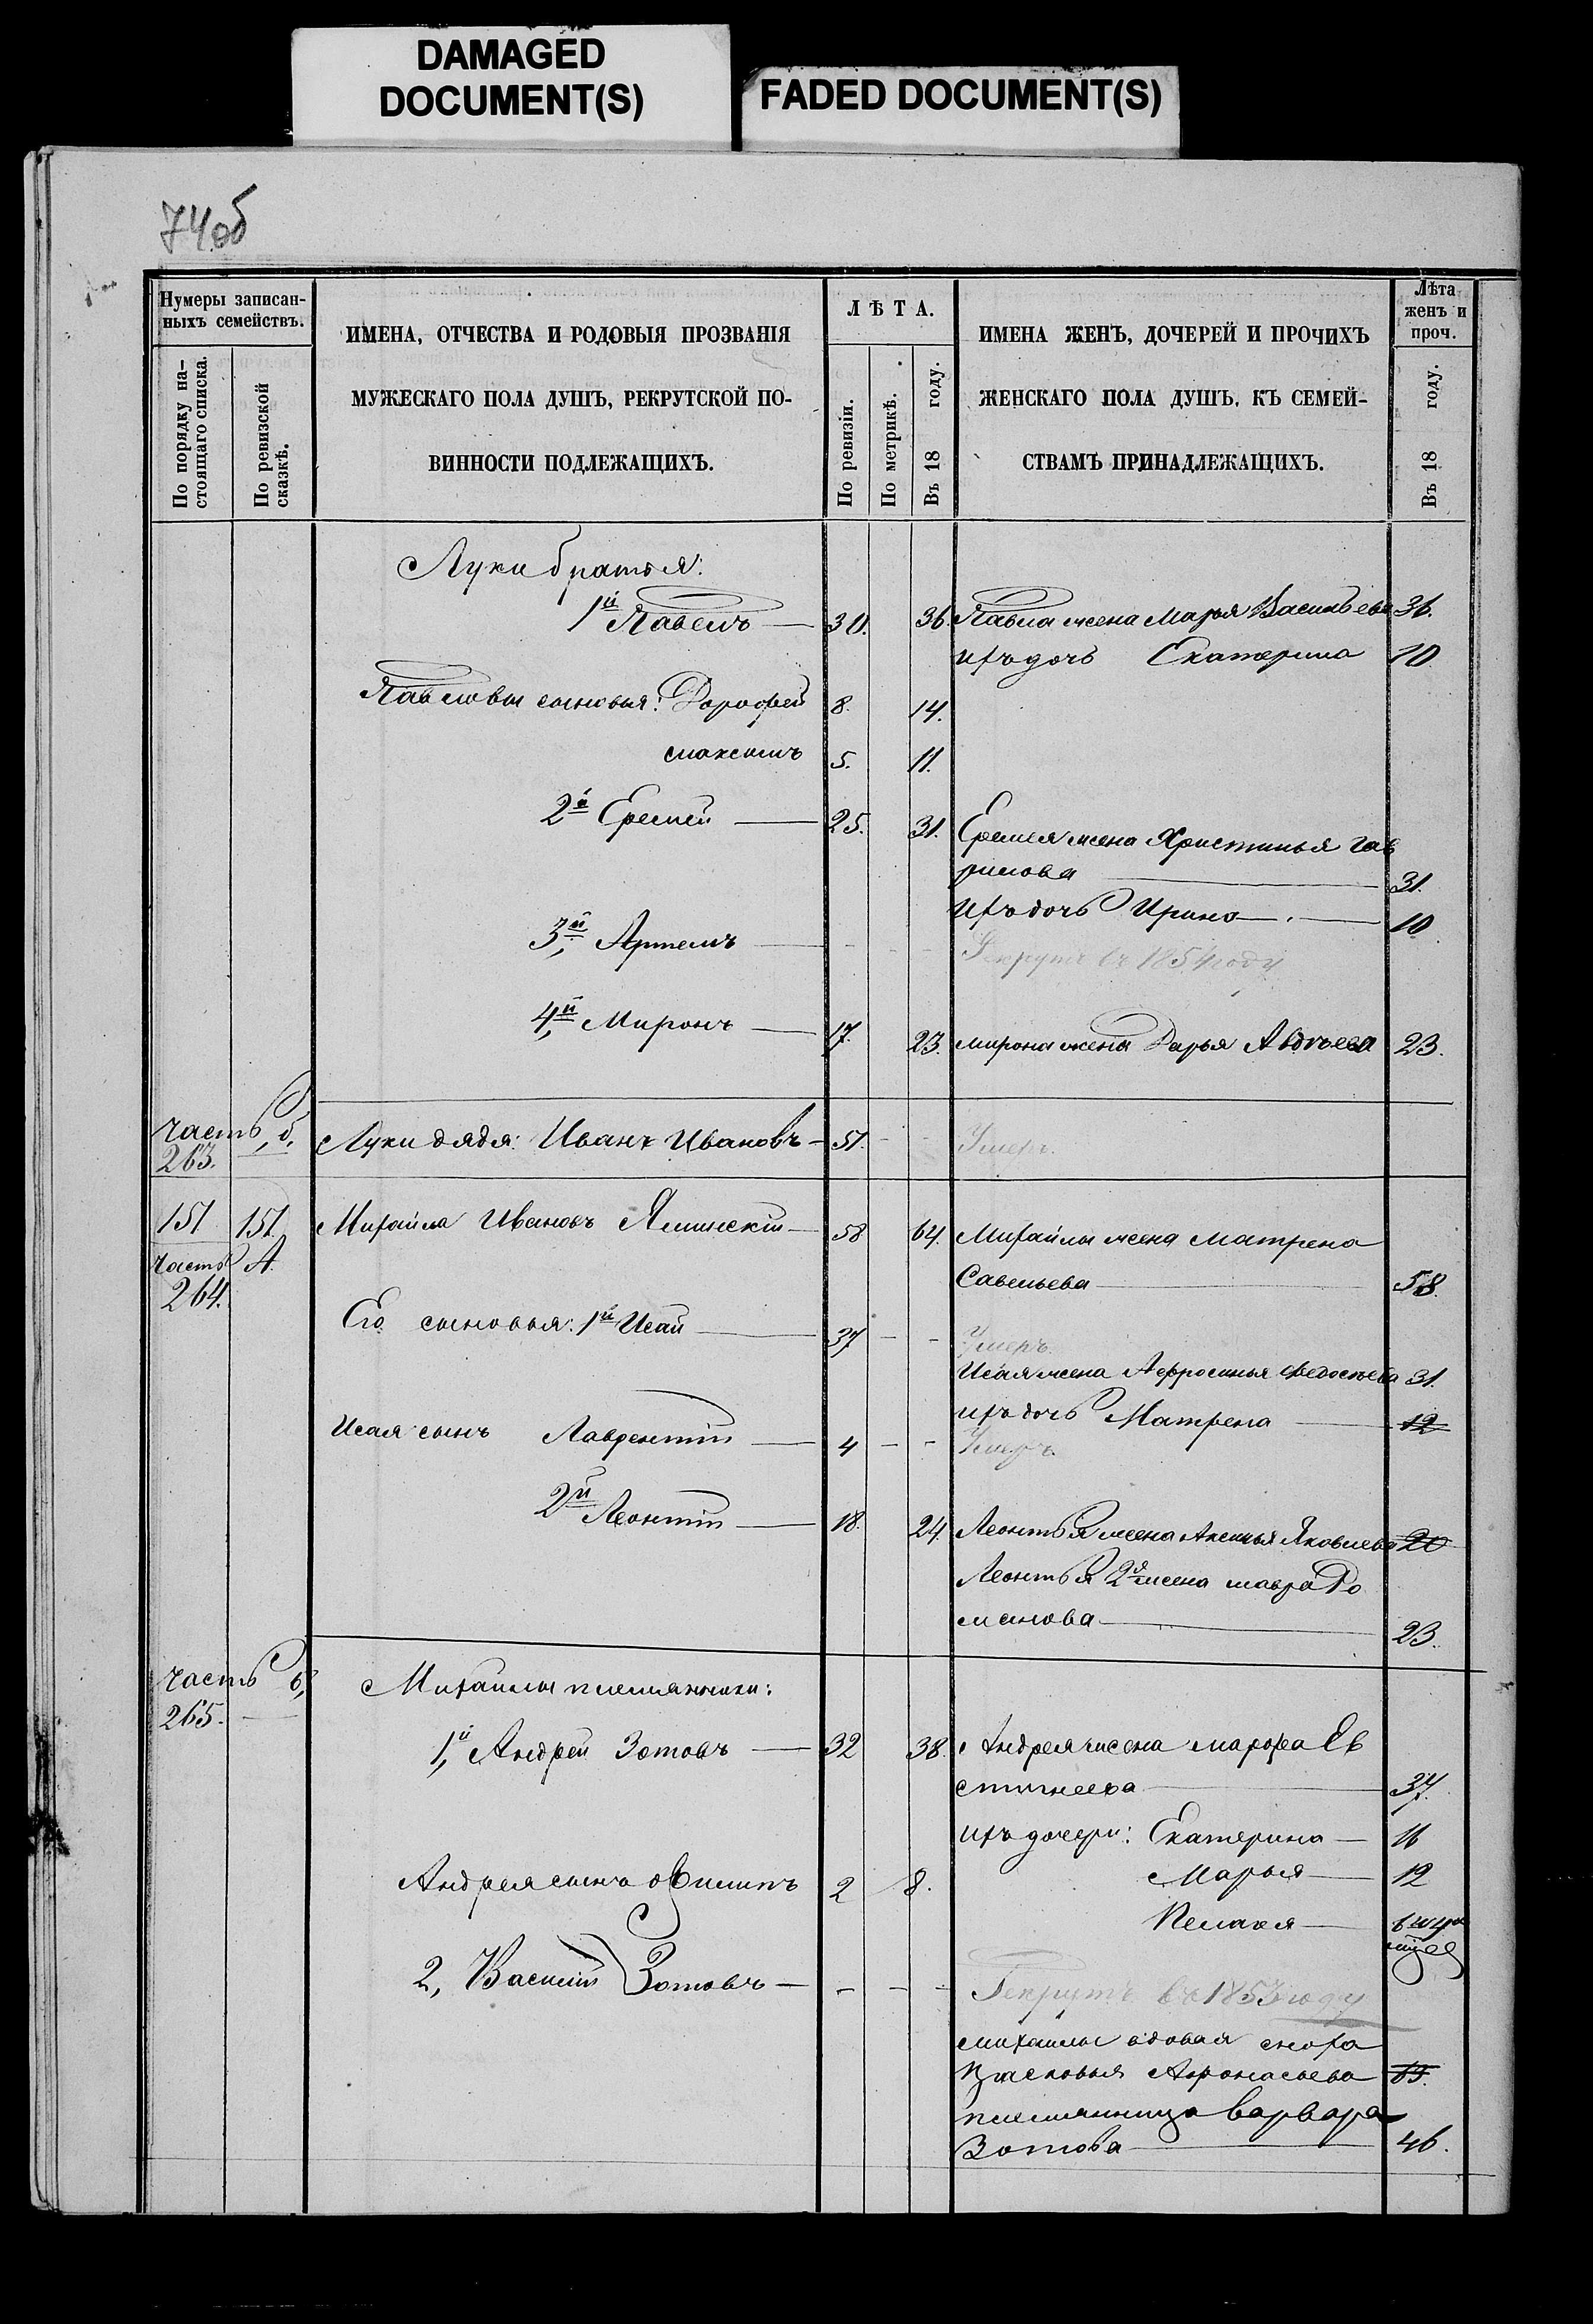 DAMAGED
DOCUMENT(S)
FADED DOCUMENT(S)
74об
Нумеры записан-
ныхъ семействъ.
По порядку на-
стоящаго списка.
По ревизской
сказкѣ.
ИМЕНА, ОТЧЕСТВА И РОДОВЫЯ ПРОЗВАНІЯ
МУЖЕСКАГО ПОЛА ДУШЪ, РЕКРУТСКОЙ ПО-
ВИННОСТИ ПОДЛЕЖАЩИХЪ.
ЛѢТА.
По ревизіи.
По метрикѣ.
Въ 18 году.
ИМЕНА ЖЕНЪ, ДОЧЕРЕЙ И ПРОЧИХЪ
ЖЕНСКАГО ПОЛА ДУШЪ, КЪ СЕМЕЙ-
СТВАМЪ ПРИНАДЛЕЖАЩИХЪ.
Лѣта
женъ и
проч.
Въ 18 году.
Луки братья:
1й Павелъ — 30. 36. Павла жена Марья Васильева 36.
ихъ дочь Екатерина 10
Павловы сыновья: Дорофей 8. 14.
Максимъ 5. 11.
2й Еремей — 25. 31. Еремея жена Христинья Гав
рилова — 31.
ихъ дочь Ирина — 10
3й, Артемъ — - - - Рекрутъ въ 1854 году
4й, Миронъ — 17. 23. Мирона жена Дарья Авдѣева 23.
часть б,
263. Луки дядя: Иванъ Ивановъ — 51. - - Умеръ.
151 151 Михайла Ивановъ Яминскій — 58 64. Михайлы жена Матрена
часть А.
264.
Савельева — 58.
Его сыновья: 1й Исай — 37 - - Умеръ.
Исая жена Афросинья Федосѣева 31.
ихъ дочь Матрена — 12
Исая сынъ Лаврентій — 4 - - Умеръ.
2й Леонтій — 18. 24. Леонтья жена Аксинья Яковлева 20
Леонтья 2я жена Мавра Ро
манова — 23.
часть б,
265. —
Михайлы племянники:
1,й Андрей Зотовъ — 32 38. Андрея жена Марфа Ев
стигнеева — 37.
ихъ дочери: Екатерина — 16
Марья — 12
Андрея сынъ Филипъ 2 8.
Пелагея —
2, Василій Зотовъ — - - - Рекрутъ въ 1853 году
Михайлы вдовая сноха
Прасковья Афонасьева
племянница Варвара
Зотова — 46.